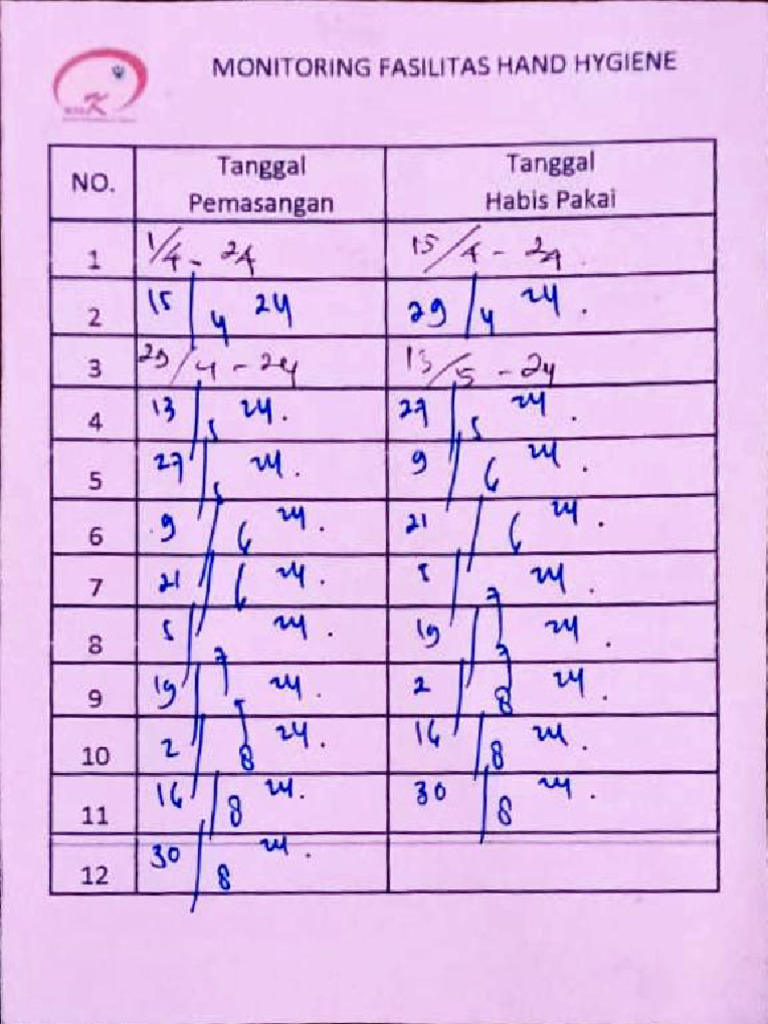 MONITORING FASILITAS HAND HYGIENE
NO. Tanggal Pemasangan Tanggal Habis Pakai
1 1/4 - 24 15/4 - 24.
2 15/4 24 29/4 24.
3 29/4 - 24 13/5 - 24
4 13/5 24. 27/5 24.
5 27/5 24. 9/6 24.
6 9/6 24. 21/6 24.
7 21/6 24. 5/7 24.
8 5/7 24. 19/7 24.
9 19/7 24. 2/8 24.
10 2/8 24. 16/8 24.
11 16/8 24. 30/8 24.
12 30/8 24.